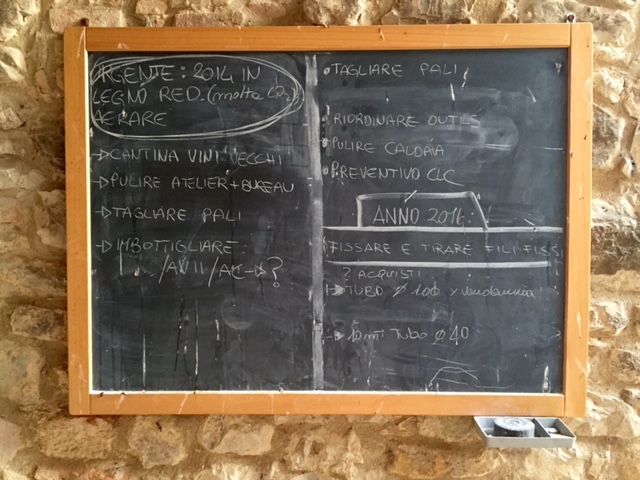 URGENTE: 2014 IN
LEGNO RED. (molta CO2)
AERARE
→CANTINA VINI VECCHI
→PULIRE ATELIER + BUREAU
→TAGLIARE PALI
→IMBOTTIGLIARE:
/AVII/ →?
•TAGLIARE PALI
RIORDINARE OUTILS
•PULIRE CALDAIA
•PREVENTIVO CLC
ANNO 2016:
FISSARE E TIRARE FILI FISSI
? ACQUISTI
→TUBO Ø 100 x vendemmia
→10 mt Tubo Ø 40